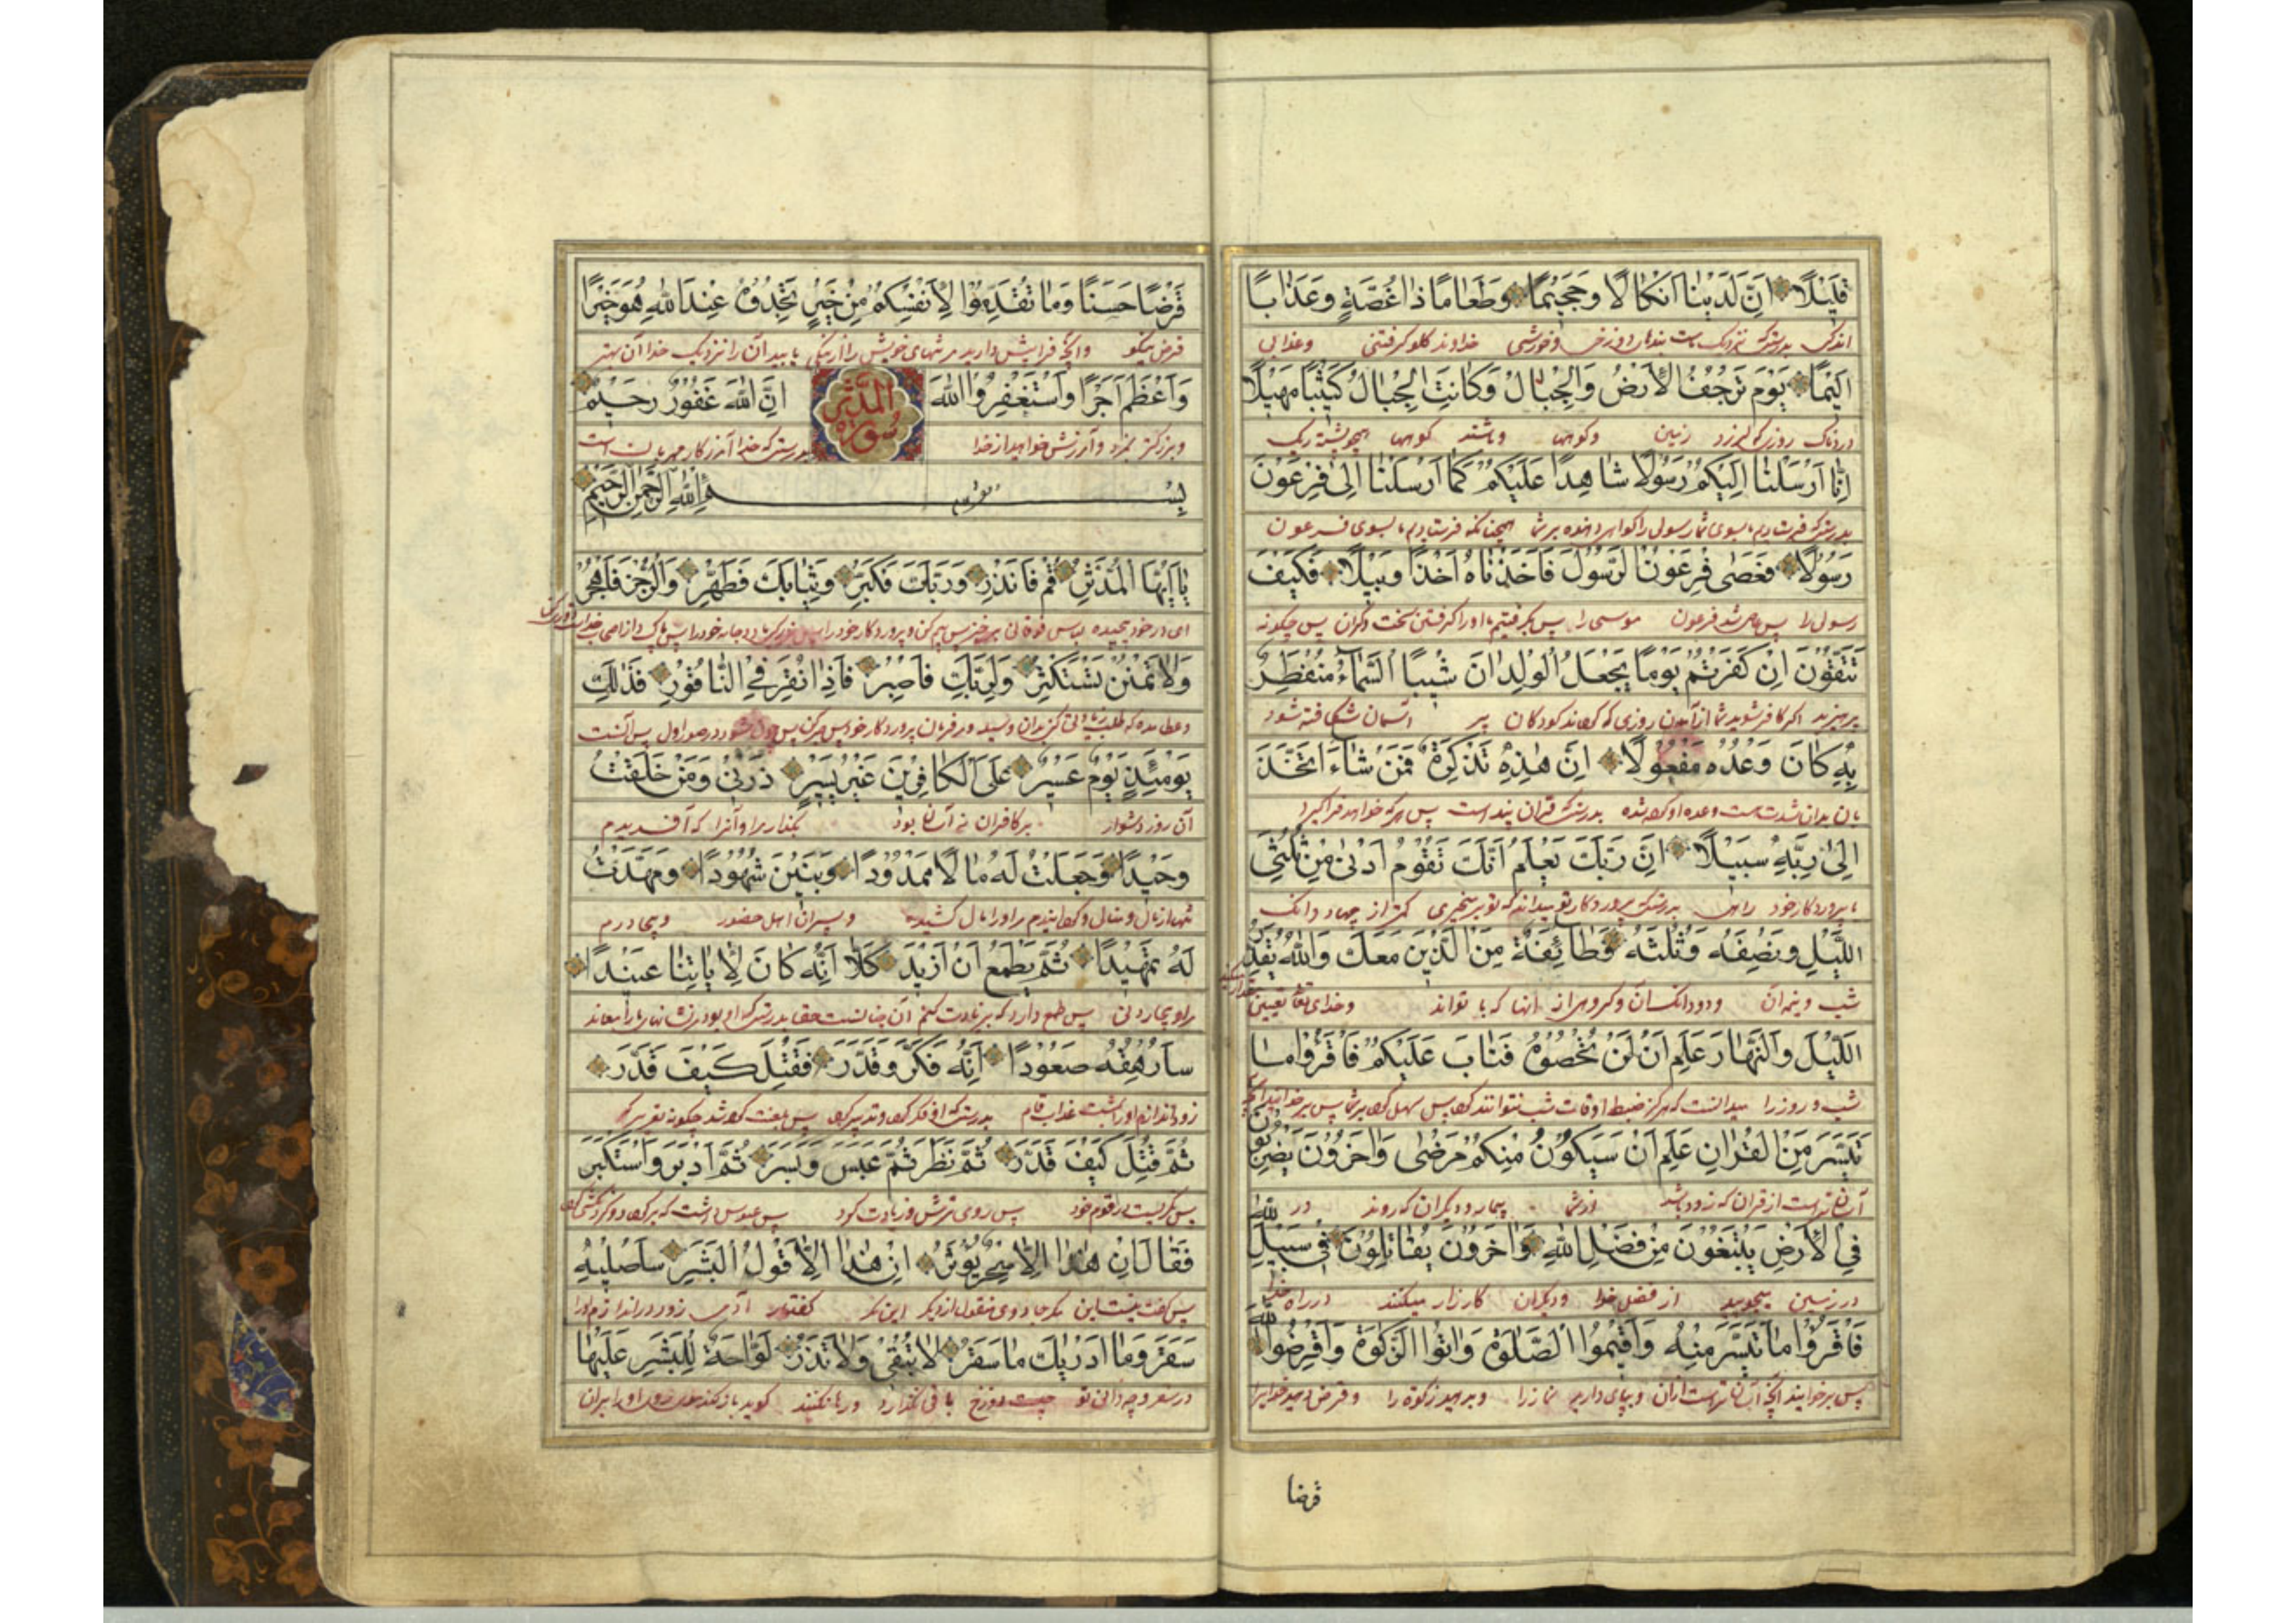 قَلِيلًا اِنَّ لَدَيْنَا اَنْكَالًا وَجَحِيمًا وَطَعَامًا ذَا غُصَّةٍ وَعَذَابًا
اندک بدرستیکه نزدیک ماست بندهای و دوزخ و خورشی خداوند گلو گرفتنی و عذابی
اَلِيمًا يَوْمَ تَرْجُفُ الْاَرْضُ وَالْجِبَالُ وَكَانَتِ الْجِبَالُ كَثِيبًا مَهِيلًا
دردناک روزی که لرزد زمین و کوهها و باشند کوهها همچو پشته ریک
اِنَّا اَرْسَلْنَا اِلَيْكُمْ رَسُولًا شَاهِدًا عَلَيْكُمْ كَمَا اَرْسَلْنَا اِلَى فِرْعَوْنَ
بدرستیکه فرستادیم بسوی شما رسولی را گواهی دهنده بر شما همچنانکه فرستادیم بسوی فرعون
رَسُولًا فَعَصَى فِرْعَوْنُ الرَّسُولَ فَاَخَذْنَاهُ اَخْذًا وَبِيلًا فَكَيْفَ
رسولی را پس عاصی شد فرعون موسی را پس بگرفتیم او را گرفتن سخت و گران پس چگونه
تَتَّقُونَ اِنْ كَفَرْتُمْ يَوْمًا يَجْعَلُ الْوِلْدَانَ شِيبًا السَّمَاءُ مُنْفَطِرٌ
بپرهیزید اگر کافر شوید شما از روزی که کودکان پیر آسمان شکافته شود
بِهِ كَانَ وَعْدُهُ مَفْعُولًا اِنَّ هٰذِهِ تَذْكِرَةٌ فَمَنْ شَاءَ اتَّخَذَ
وعده او بدرستیکه قران پند است پس هر که خواهد فرا گیرد
اِلَى رَبِّهِ سَبِيلًا اِنَّ رَبَّكَ يَعْلَمُ اَنَّكَ تَقُومُ اَدْنَى مِنْ ثُلُثَيِ
پروردگار خود راهی بدرستیکه پروردگار تو میداند که تو برمیخیزی کمتر از چهار دانک
اللَّيْلِ وَنِصْفَهُ وَثُلُثَهُ وَطَائِفَةٌ مِنَ الَّذِينَ مَعَكَ وَاللّٰهُ يُقَدِّرُ
شب و نیمه آن و دو دانک آن و گروهی از آنها که با تواند و خدای تعالی تعیین
اللَّيْلَ وَالنَّهَارَ عَلِمَ اَنْ لَنْ تُحْصُوهُ فَتَابَ عَلَيْكُمْ فَاقْرَؤُا مَا
شب و روز را میدانست که هرگز ضبط اوقات شب نتوانند پس سهل بر شما پس برخوانید
تَيَسَّرَ مِنَ الْقُرْاٰنِ عَلِمَ اَنْ سَيَكُونُ مِنْكُمْ مَرْضَى وَاٰخَرُونَ يَضْرِبُونَ
آسانتر است از قران که زود باشد از شما بیمار و دیگران که روند در
فِي الْاَرْضِ يَبْتَغُونَ مِنْ فَضْلِ اللّٰهِ وَاٰخَرُونَ يُقَاتِلُونَ فِي سَبِيلِ اللّٰهِ
در زمین میجویند از فضل خدا و دیگران کارزار میکنند در راه خدا
فَاقْرَؤُا مَا تَيَسَّرَ مِنْهُ وَاَقِيمُوا الصَّلٰوةَ وَاٰتُوا الزَّكٰوةَ وَاَقْرِضُوا اللّٰهَ
پس برخوانید آنچه آسانتر است از آن و بپای دارید نماز را و بدهید زکوة را و قرض دهید خدایرا
قرضا
قَرْضًا حَسَنًا وَمَا تُقَدِّمُوا لِاَنْفُسِكُمْ مِنْ خَيْرٍ تَجِدُوهُ عِنْدَ اللّٰهِ هُوَ خَيْرًا
قرض نیکو و آنچه فرا پیش دارید مر تنهای خویش را از نیکی بیابید آن را نزدیک خدا آن بهتر
وَاَعْظَمَ اَجْرًا وَاسْتَغْفِرُوا اللّٰهَ اِنَّ اللّٰهَ غَفُورٌ رَحِيمٌ
سورة المدثر
و بزرگتر بمزد و آمرزش خواهید از خدا بدرستیکه خدا آمرزگار مهربان است
بِسْمِ اللّٰهِ الرَّحْمٰنِ الرَّحِيمِ
يَا اَيُّهَا الْمُدَّثِّرُ قُمْ فَاَنْذِرْ وَرَبَّكَ فَكَبِّرْ وَثِيَابَكَ فَطَهِّرْ وَالرُّجْزَ فَاهْجُرْ
ای در خود پیچیده لباس برخیز پس بیم کن و پروردگار خود را و جامه خود را پس پاک دار
وَلَا تَمْنُنْ تَسْتَكْثِرُ وَلِرَبِّكَ فَاصْبِرْ فَاِذَا نُقِرَ فِي النَّاقُورِ فَذٰلِكَ
و عطا مده که طلب پروردگار خود پس صبر کن پس چون در صور اول پس آنست
يَوْمَئِذٍ يَوْمٌ عَسِيرٌ عَلَى الْكَافِرِينَ غَيْرُ يَسِيرٍ ذَرْنِي وَمَنْ خَلَقْتُ
آن روز دشوار بر کافران نه آسان بود بگذار مرا و آنرا که آفریدم
وَحِيدًا وَجَعَلْتُ لَهُ مَالًا مَمْدُودًا وَبَنِينَ شُهُودًا وَمَهَّدْتُ
تنها او را مال کشیده و پسران اهل حضور
لَهُ تَمْهِيدًا ثُمَّ يَطْمَعُ اَنْ اَزِيدَ كَلَّا اِنَّهُ كَانَ لِاٰيَاتِنَا عَنِيدًا
پس طمع دارد که زیادت کنم آن چنان نیست حقا بدرستیکه او بود
سَاُرْهِقُهُ صَعُودًا اِنَّهُ فَكَّرَ وَقَدَّرَ فَقُتِلَ كَيْفَ قَدَّرَ
بدرستیکه او فکر و تدبیر پس لعنت شد چگونه
ثُمَّ قُتِلَ كَيْفَ قَدَّرَ ثُمَّ نَظَرَ ثُمَّ عَبَسَ وَبَسَرَ ثُمَّ اَدْبَرَ وَاسْتَكْبَرَ
پس نگریست در قوم خود پس روی ترش و زیادت کرد پس
فَقَالَ اِنْ هٰذَا اِلَّا سِحْرٌ يُؤْثَرُ اِنْ هٰذَا اِلَّا قَوْلُ الْبَشَرِ سَاُصْلِيهِ
پس گفت نیست این مگر جادوی منقول از دیگر این مگر گفتار آدمی زود
سَقَرَ وَمَا اَدْرٰيكَ مَا سَقَرُ لَا تُبْقِي وَلَا تَذَرُ لَوَّاحَةٌ لِلْبَشَرِ عَلَيْهَا
در سقر و چه دانی تو چیست دوزخ باقی نگذارد و رها نکنند